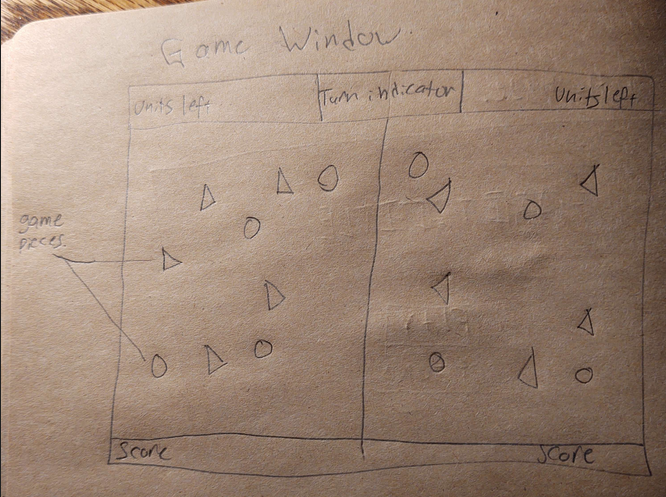 Game Window
Units left
Turn indicator
Units left
game
pieces
Score
Score